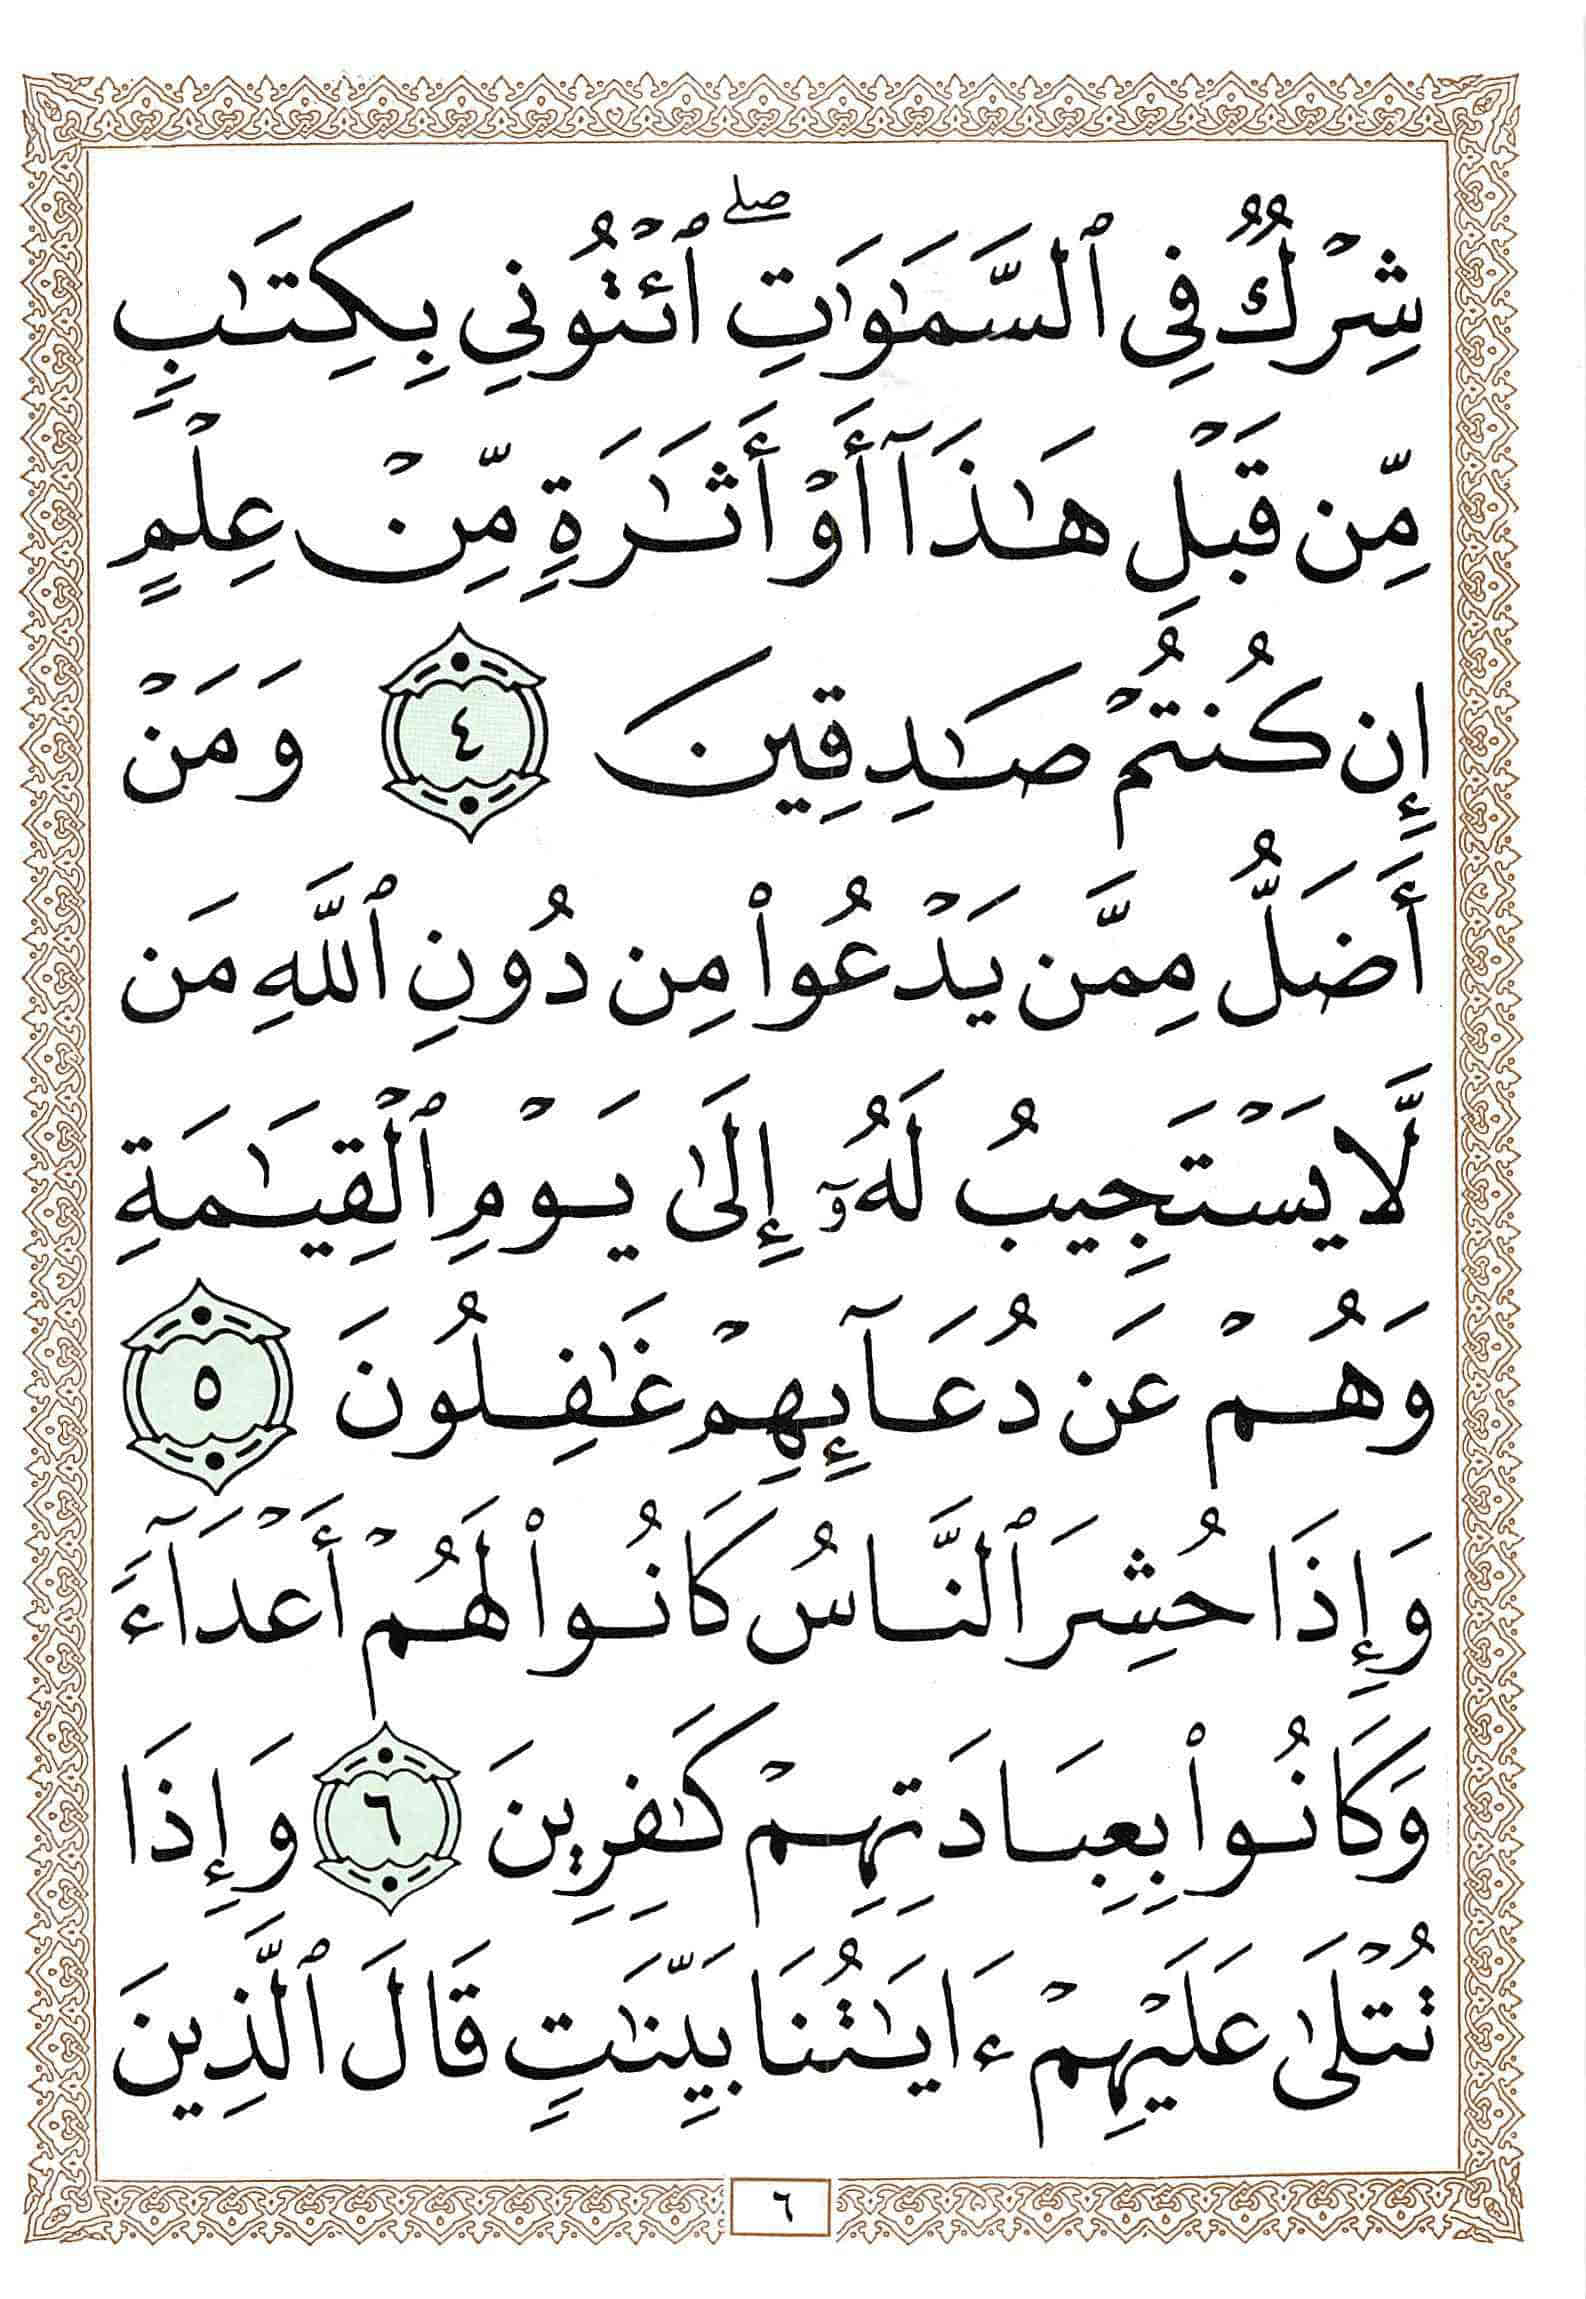 شِرْكٌ فِى ٱلسَّمَٰوَٰتِ ۖ ٱئْتُونِى بِكِتَٰبٍ
مِّن قَبْلِ هَٰذَآ أَوْ أَثَٰرَةٍ مِّنْ عِلْمٍ
إِن كُنتُمْ صَٰدِقِينَ ٤ وَمَنْ
أَضَلُّ مِمَّن يَدْعُوا۟ مِن دُونِ ٱللَّهِ مَن
لَّا يَسْتَجِيبُ لَهُۥٓ إِلَىٰ يَوْمِ ٱلْقِيَٰمَةِ
وَهُمْ عَن دُعَآئِهِمْ غَٰفِلُونَ ٥
وَإِذَا حُشِرَ ٱلنَّاسُ كَانُوا۟ لَهُمْ أَعْدَآءً
وَكَانُوا۟ بِعِبَادَتِهِمْ كَٰفِرِينَ ٦ وَإِذَا
تُتْلَىٰ عَلَيْهِمْ ءَايَٰتُنَا بَيِّنَٰتٍ قَالَ ٱلَّذِينَ
٦